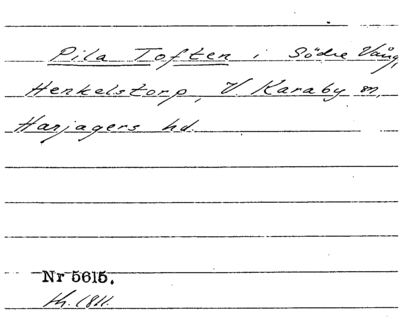 Pila Toften i Södre Vång,
Henkelstorp, V. Karaby sn,
Harjagers hd.
Nr 5615.
th. 1811.